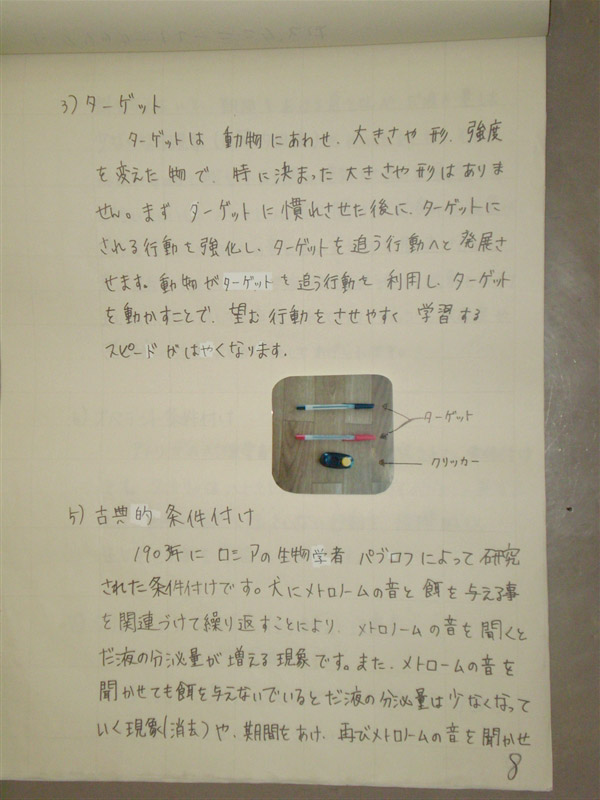 3) ターゲット
ターゲットは 動物にあわせ、大きさや 形、強度
を変えた 物で、特に決まった 大きさや形はありま
せん。まず ターゲットに慣れさせた後に、ターゲットに
される行動を強化し、ターゲットを追う行動へと発展さ
せます。動物がターゲットを追う行動を 利用し、ターゲット
を動かすことで、望む行動をさせやすく 学習する
スピードがはやくなります。
ターゲット
クリッカー
5) 古典的 条件付け
1903年に ロシアの生物学者 パブロフによって研究
された条件付けです。犬にメトロノームの音と餌を与える事
を関連づけて繰り返すことにより、メトロノームの音を聞くと
だ液の分泌量が増える現象です。また、メトロームの音を
聞かせても餌を与えないでいるとだ液の分泌量は少なくなって
いく現象(消去)や、期間をあけ、再びメトロノームの音を聞かせ
8